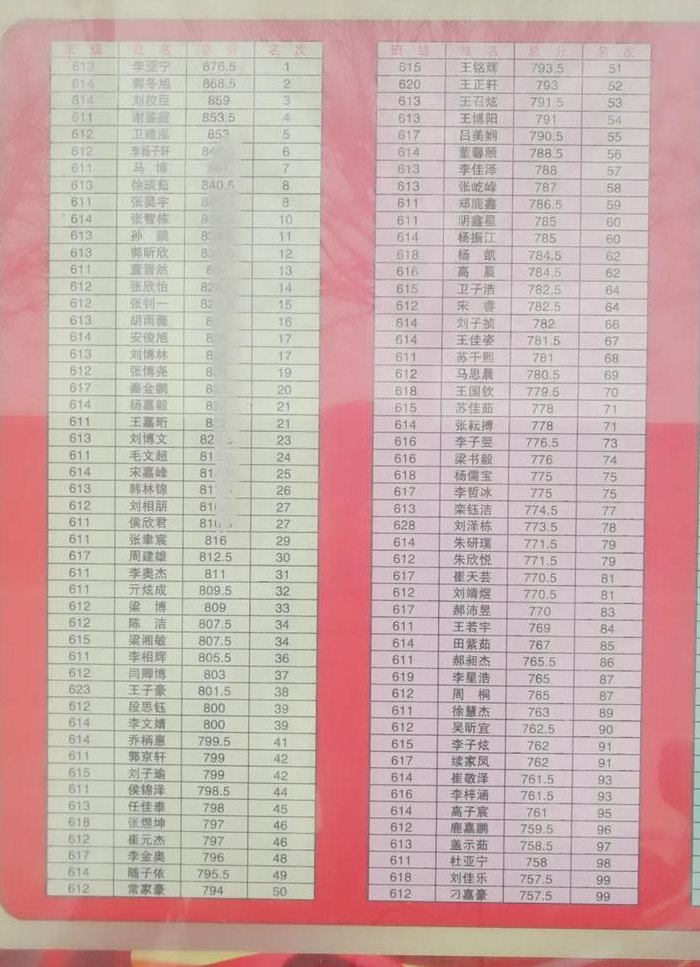 班 级 姓 名 总 分 名 次
613 李亚宁 876.5 1
614 郭冬旭 868.5 2
614 刘校臣 859 3
611 谢鉴庭 853.5 4
612 卫建泓 853 5
612 李杨子轩 6
611 马 博 7
613 徐琰茹 840.5 8
611 张昊宇 8
614 张智栋 10
613 孙 鹏 11
613 郭昕欣 12
611 董晋然 13
612 张欣怡 14
612 张钊一 15
613 胡雨薇 16
614 安俊旭 17
613 刘博林 17
612 张博尧 19
617 秦金鹏 20
614 杨嘉毅 21
611 王嘉珩 21
613 刘博文 23
611 毛文超 24
614 宋嘉峰 25
613 韩林锦 26
612 刘相朋 27
611 侯欣君 27
611 张聿宸 816 29
617 周建雄 812.5 30
611 李奥杰 811 31
611 亓炫成 809.5 32
612 梁 博 809 33
612 陈 洁 807.5 34
615 梁湘敏 807.5 34
611 李相辉 805.5 36
612 闫卿博 803 37
623 王子豪 801.5 38
612 段思钰 800 39
614 李文婧 800 39
614 乔柄惠 799.5 41
611 郭京轩 799 42
615 刘子瑜 799 42
611 侯锦泽 798.5 44
613 任佳泰 798 45
618 张煜坤 797 46
612 崔元杰 797 46
617 李金奥 796 48
614 随子依 795.5 49
612 常家豪 794 50
班 级 姓 名 总 分 名 次
615 王铭辉 793.5 51
620 王正轩 793 52
613 王召炫 791.5 53
613 王博阳 791 54
617 吕美娴 790.5 55
614 董馨颐 788.5 56
613 李佳泽 788 57
613 张屹峰 787 58
611 郑鹿鑫 786.5 59
611 阴鑫星 785 60
614 杨振江 785 60
618 杨 凯 784.5 62
616 高 晨 784.5 62
615 卫子浩 782.5 64
612 宋 睿 782.5 64
614 刘子祯 782 66
614 王佳姿 781.5 67
611 苏千熙 781 68
612 马思晨 780.5 69
618 王国钦 779.5 70
615 苏佳茹 778 71
614 张耘搏 778 71
616 李子翌 776.5 73
616 梁书毅 776 74
618 杨儒宝 775 75
617 李哲冰 775 75
613 栾钰洁 774.5 77
628 刘泽栋 773.5 78
614 朱研璞 771.5 79
612 朱欣悦 771.5 79
617 崔天芸 770.5 81
612 刘靖煜 770.5 81
617 郝沛昱 770 83
611 王若宇 769 84
614 田紫茹 767 85
611 郝昶杰 765.5 86
619 李星浩 765 87
612 周 桐 765 87
611 徐慧杰 763 89
612 吴昕宜 762.5 90
615 李子炫 762 91
617 续家凤 762 91
614 崔敬泽 761.5 93
616 李梓涵 761.5 93
614 高子宸 761 95
612 鹿嘉鹏 759.5 96
613 盖示茹 758.5 97
611 杜亚宁 758 98
618 刘佳乐 757.5 99
612 刁嘉豪 757.5 99